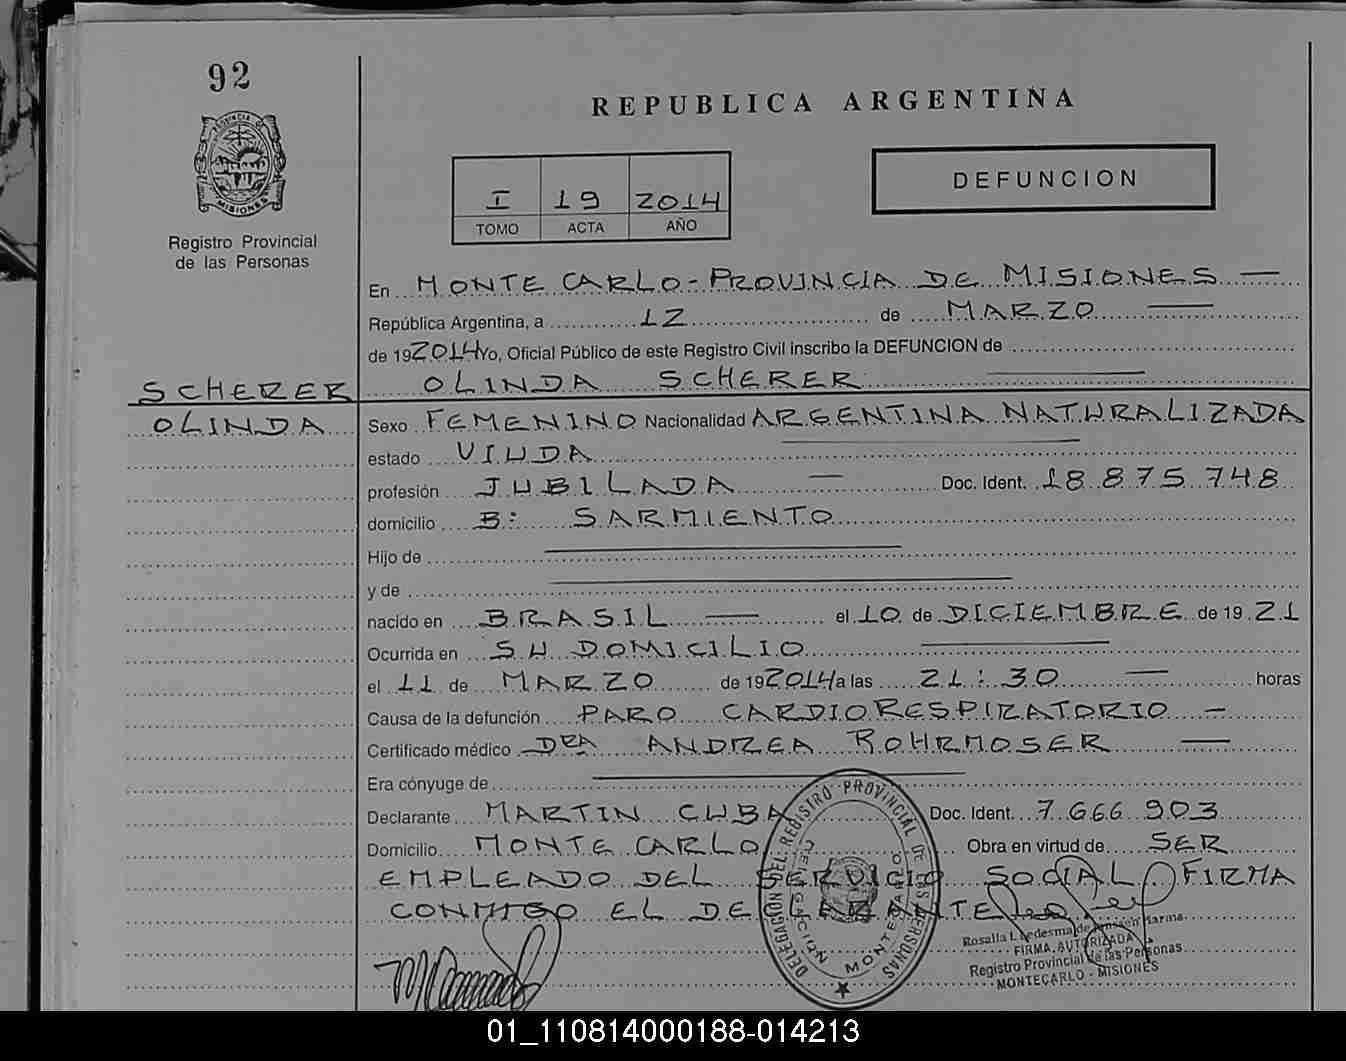 92
PROVINCIA DE
MISIONES
Registro Provincial
de las Personas
REPUBLICA ARGENTINA
I 19 2014
TOMO ACTA AÑO
DEFUNCION
En MONTE CARLO - PROVINCIA DE MISIONES —
República Argentina, a 12 de MARZO —
de 192014 Yo, Oficial Público de este Registro Civil inscribo la DEFUNCION de
SCHERER
OLINDA
OLINDA SCHERER —
Sexo FEMENINO Nacionalidad ARGENTINA NATURALIZADA
estado VIUDA —
profesión JUBILADA — Doc. Ident. 18 875 748
domicilio B: SARMIENTO
Hijo de —
y de —
nacido en BRASIL — el 10 de DICIEMBRE de 19 21
Ocurrida en SU DOMICILIO —
el 11 de MARZO de 192014 a las 21:30 — horas
Causa de la defunción PARO CARDIORESPIRATORIO —
Certificado médico DRA ANDREA ROHRMOSER —
Era cónyuge de —
Declarante MARTIN CUBA Doc. Ident. 7 666 903
Domicilio MONTE CARLO Obra en virtud de SER
EMPLEADO DEL SERVICIO SOCIAL FIRMA
CONMIGO EL DECLARANTE
DELEGACIÓN DEL REGISTRO PROVINCIAL DE LAS PERSONAS
DELEGACIÓN MONTECARLO
Rosalia L. Ledesma de
FIRMA AUTORIZADA
Registro Provincial de las Personas
MONTECARLO - MISIONES
01_110814000188-014213